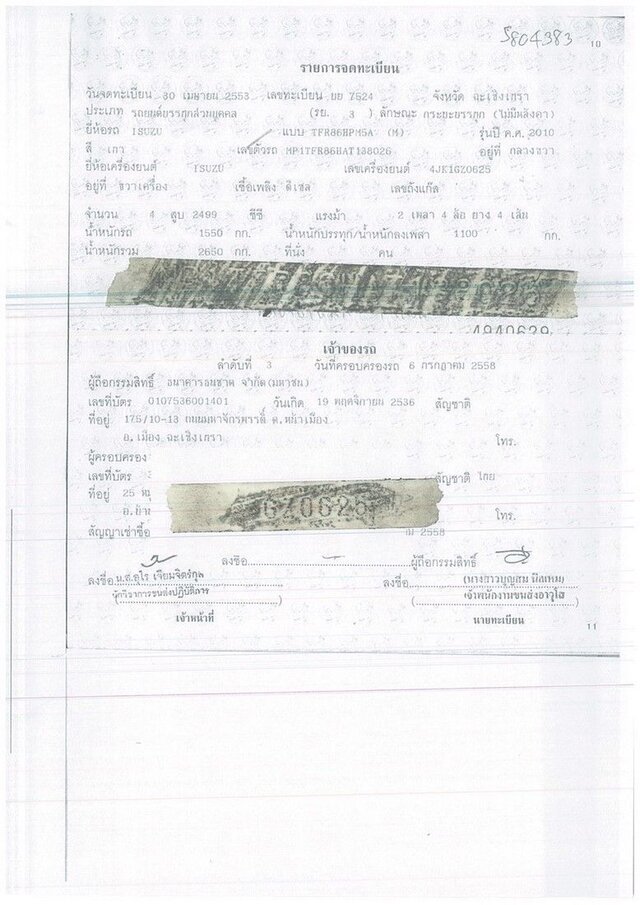 5804383 10
รายการจดทะเบียน
วันจดทะเบียน 30 เมษายน 2553 เลขทะเบียน ยย 7524 จังหวัด ฉะเชิงเทรา
ประเภท รถยนต์บรรทุกส่วนบุคคล (รย. 3 ) ลักษณะ กระบะบรรทุก (ไม่มีหลังคา)
ยี่ห้อรถ ISUZU แบบ TFR86HPM5A (M) รุ่นปี ค.ศ. 2010
สี เทา เลขตัวรถ MP1TFR86HAT138026 อยู่ที่ กลางขวา
ยี่ห้อเครื่องยนต์ ISUZU เลขเครื่องยนต์ 4JK1GZ0625
อยู่ที่ ขวาเครื่อง เชื้อเพลิง ดีเซล เลขถังแก๊ส
จำนวน 4 สูบ 2499 ซีซี แรงม้า 2 เพลา 4 ล้อ ยาง 4 เส้น
น้ำหนักรถ 1550 กก. น้ำหนักบรรทุก/น้ำหนักลงเพลา 1100 กก.
น้ำหนักรวม 2650 กก. ที่นั่ง คน
4940629
เจ้าของรถ
ลำดับที่ 3 วันที่ครอบครองรถ 6 กรกฎาคม 2558
ผู้ถือกรรมสิทธิ์ ธนาคารธนชาต จำกัด(มหาชน)
เลขที่บัตร 0107536001401 วันเกิด 19 พฤศจิกายน 2536 สัญชาติ
ที่อยู่ 175/10-13 ถนนมหาจักรพรรดิ์ ต.หน้าเมือง
อ.เมือง ฉะเชิงเทรา โทร.
ผู้ครอบครอง
เลขที่บัตร สัญชาติ ไทย
ที่อยู่ 25 หมู่
Z0625
อ.บ้าน โทร.
สัญญาเช่าซื้อ 2558
ลงชื่อ ผู้ถือกรรมสิทธิ์
ลงชื่อ น.ส.อุไร เจียมจิตร์กุล ลงชื่อ
(นักวิชาการขนส่งปฏิบัติการ) (เจ้าพนักงานขนส่งอาวุโส)
เจ้าหน้าที่ นายทะเบียน
11